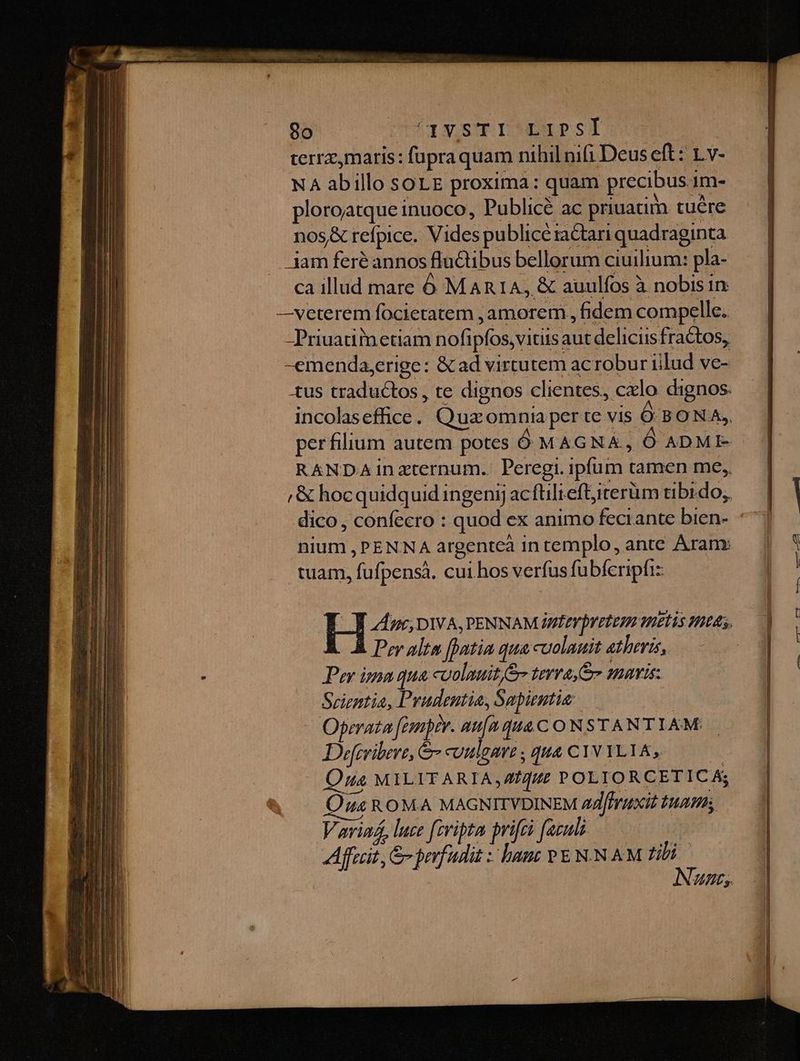 80 IVSTI LIPSI
terræ,maris: ſupra quam nihil niſi Deus eſt: LV-
NA ab illo SOLE proxima: quam precibus im-
ploro,atque inuoco, Publicè ac priuatim tuêre
nos,& reſpice. Vides publicè iactari quadraginta
iam ferè annos fluctibus bellorum ciuilium: pla-
ca illud mare Ô MARIA, & auulſos à nobis in
veterem ſocietatem, amorem, fidem compelle.
Priuatim etiam noſipſos,vitiis aut deliciis fractos,
emenda,erige: & ad virtutem ac robur illud ve-
tus traductos, te dignos clientes, cælo dignos
incolas effice. Quæ omnia per te vis Ô BONA,
per filium autem potes Ô MAGNA, Ô ADMI-
RANDA in æternum. Peregi. ipſum tamen me,
& hoc quidquid ingenij ac ſtili eſt,iterùm tibi do,
dico, conſecro: quod ex animo feci ante bien-
nium, PENNA argenteâ in templo, ante Aram
tuam, ſuſpensâ. cui hos verſus ſubſcripſi:
HAnc,DIVA,PENNAM interpretem mentis meæ,
Per alta ſpatia quæ volauit ætheris,
Per ima quæ volauit,& terræ,& maris:
Scientiæ, Prudentiæ, Sapientiæ
Operata ſempèr. auſa quæ CONSTANTIAM
Deſcribere, & vulgare, quæ CIVILIA,
Quæ MILITARIA,atque POLIORCETICA;
Quæ ROMA MAGNITVDINEM adſtruxit tuam;
Variaq́, luce ſcripta priſci ſæculi
Affecit, & perfudit: hanc PENNAM tibi
Nunc,